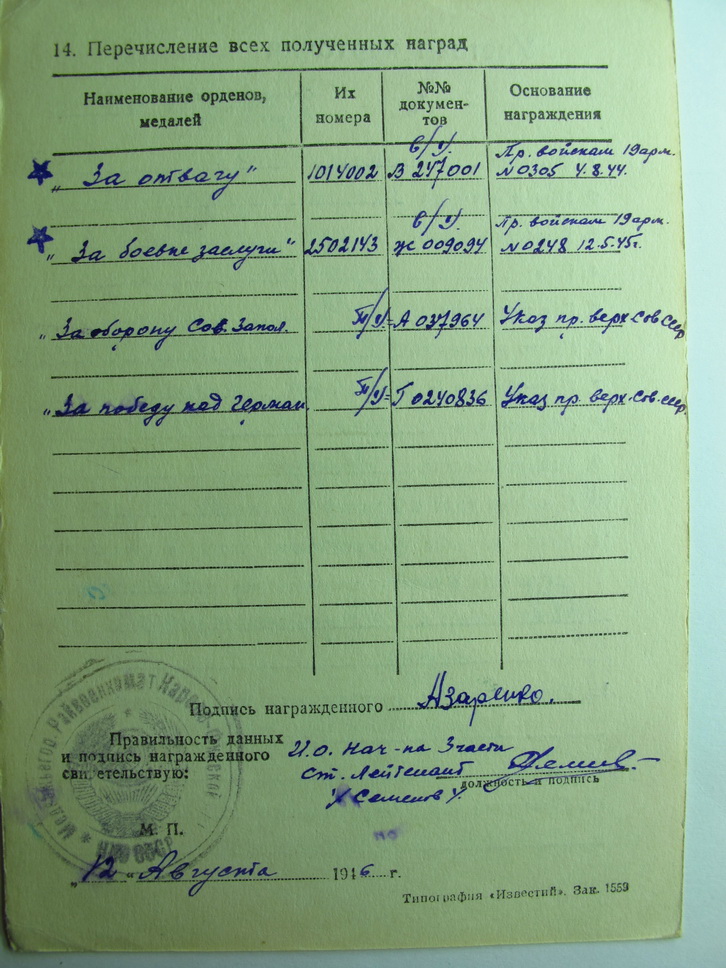 14. Перечисление всех полученных наград
Наименование орденов, медалей
Их номера
№№ документов
Основание награждения
"За отвагу" 1014002 в/у. В 247001 Пр. войскам 19 арм. №0305 4.8.44.
"За боевые заслуги" 2502143 в/у. Ж 009094 Пр. войскам 19 арм. №0248 12.5.45г.
"За оборону Сов. Запол. А 037964 Указ пр. верх. Сов. ССР
"За победу над Герман. Г 0240836 Указ пр. верх. Сов. ССР
Подпись награжденного Азаренко.
Правильность данных
и подпись награжденного
свидетельствую:
И.О. Нач-ка 3 части
Ст. Лейтенант
должность и подпись
/Семенов/
М. П.
НКО СССР
"12" Августа 1946 г.
Типография «Известий». Зак. 1559